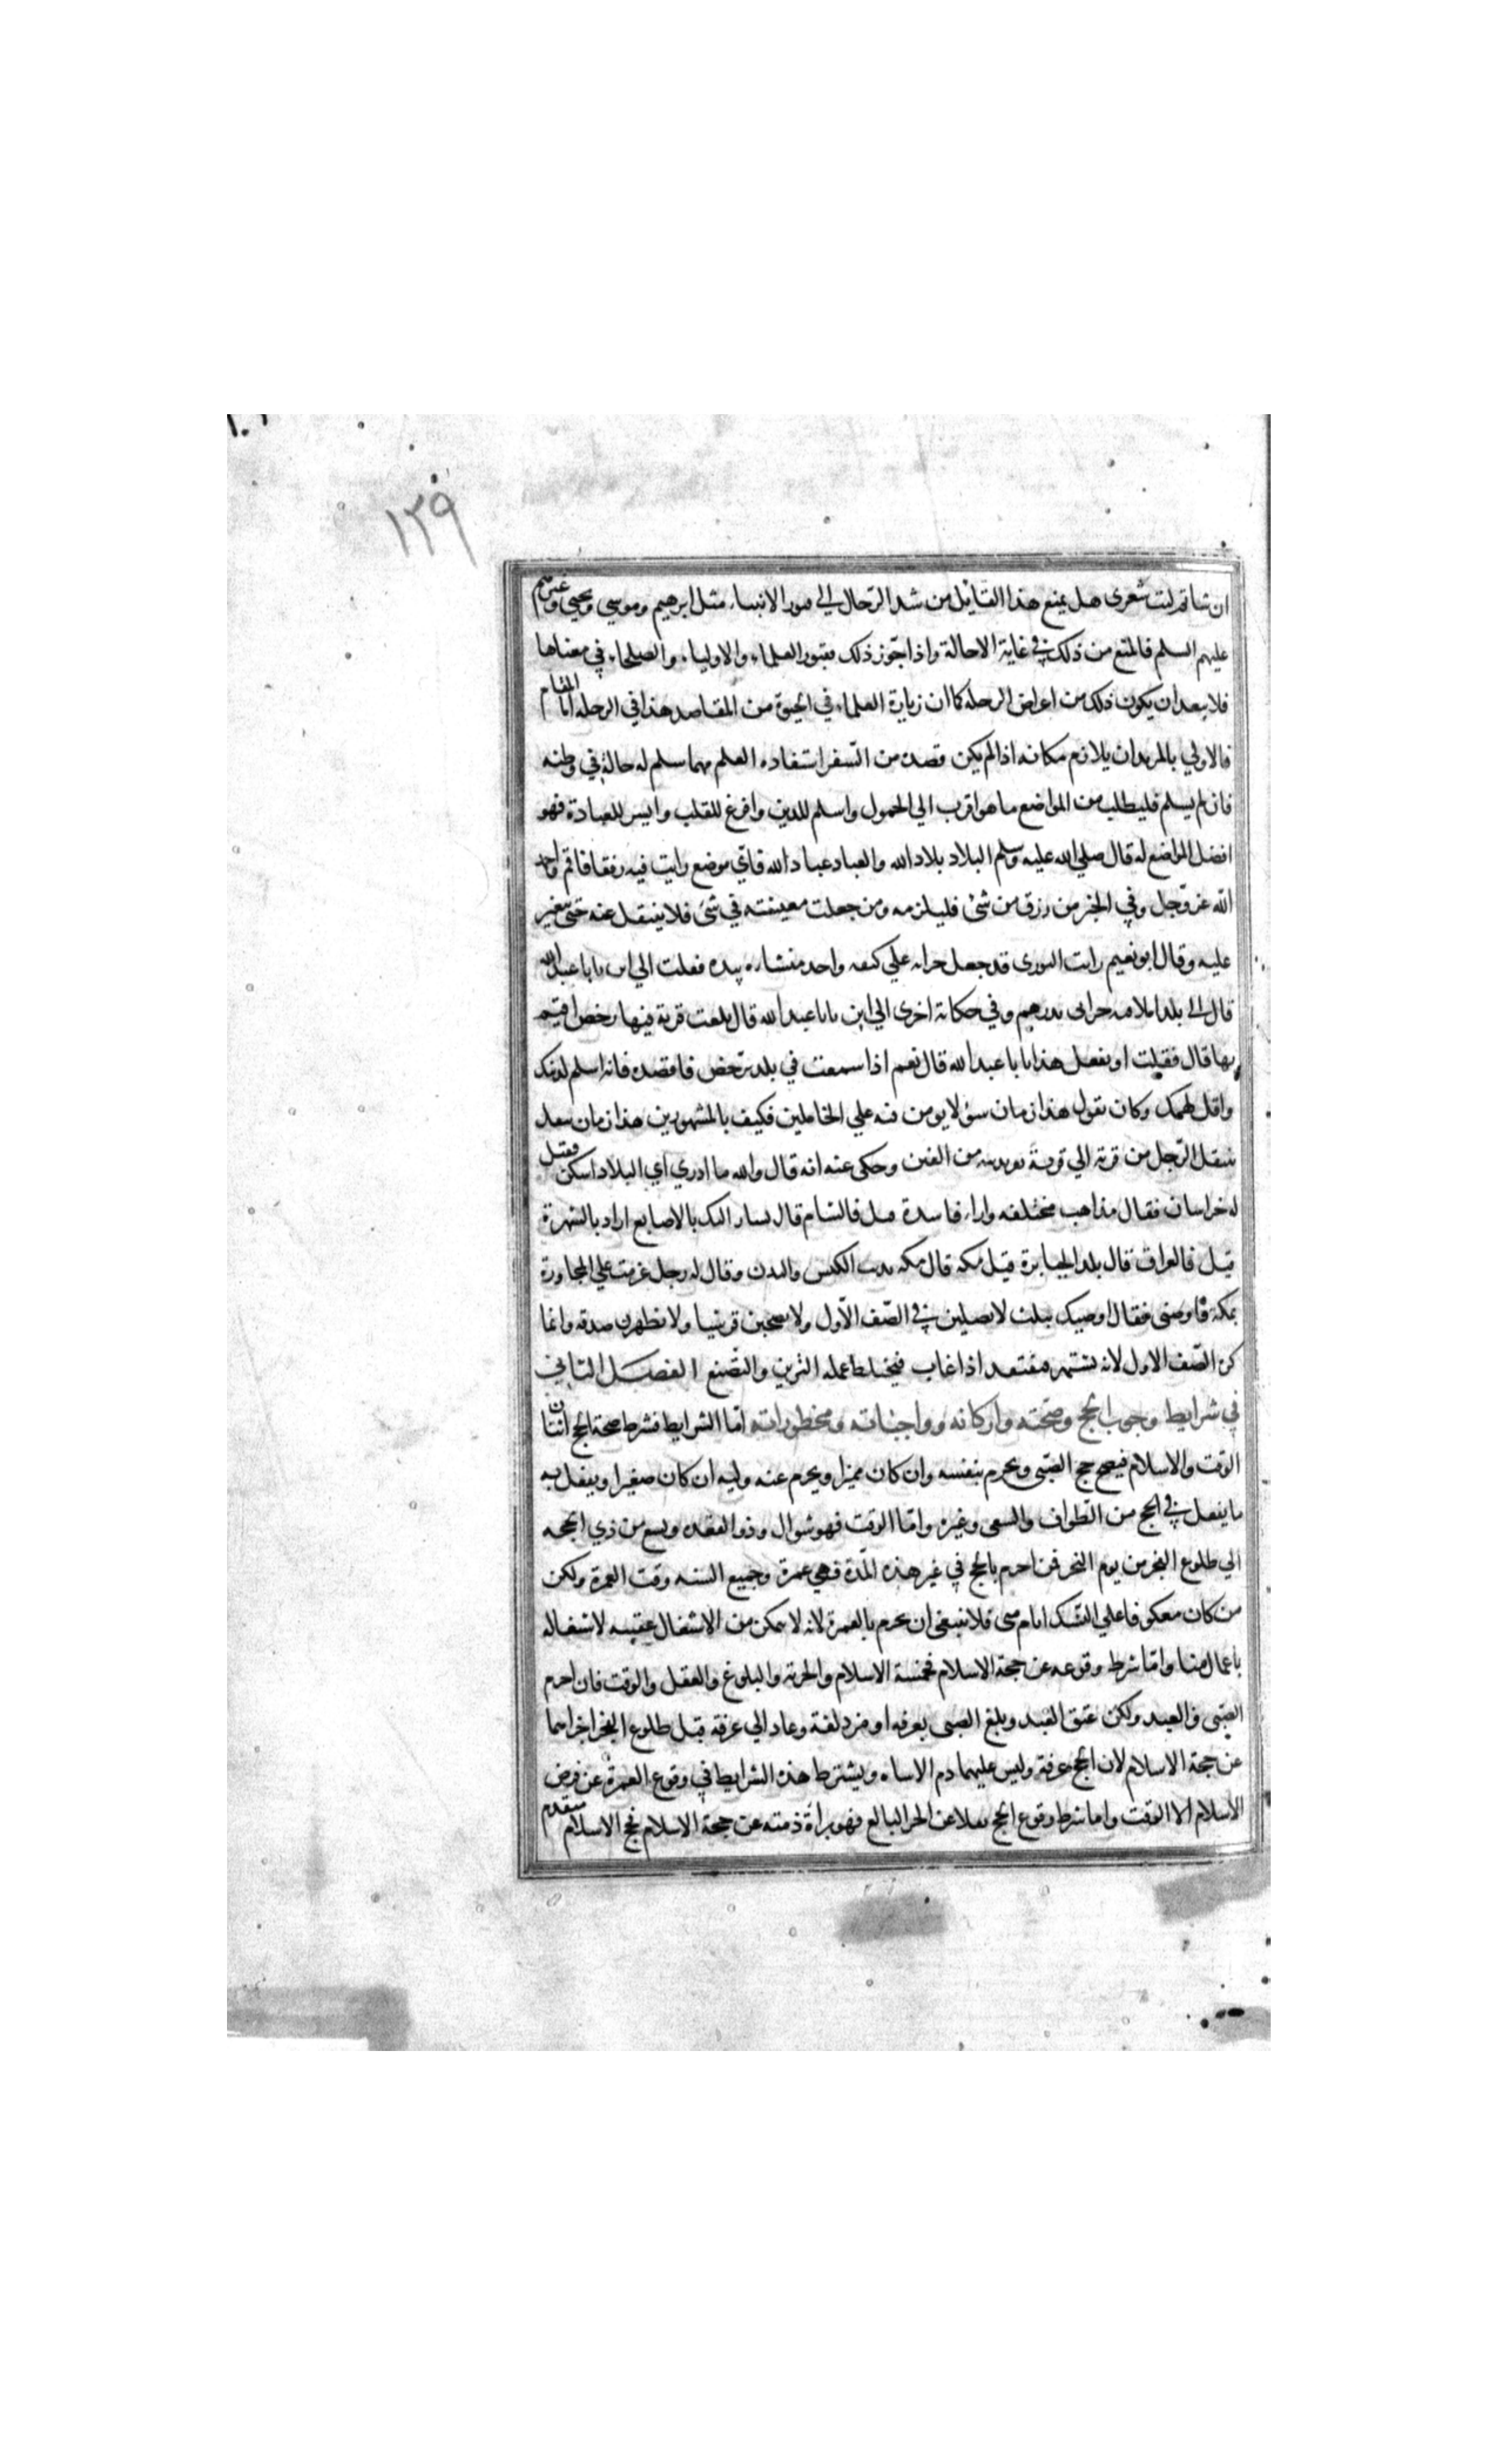 ١٢٩
ان شا ثم ليت شعرى هل يمنع هذا القايل من شد الرحال الى قبور الانبيا، مثل ابرهيم وموسي ويحيي وغيرهم
عليهم السلم فالمنع من ذلك في غاية الاحالة واذا جوز ذلك بقبور العلما، والاوليا، والصلحا، في معناها
فلا يبعد ان يكون ذلك من اغراض الرحله كما ان زيارة العلما، في الحيوة من المقاصد هذا في الرحله اما المقام
فالاولي بالمريد ان يلازم مكانه اذا لم يكن قصده من السفر استفاده العلم مهما سلم له حاله في وطنه
فان لم يسلم فليطلب من المواضع ما هو اقرب الي الخمول واسلم للدين وافرغ للقلب وايسر للعبادة فهو
افضل المواضع له قال صلي الله عليه وسلم البلاد بلاد الله والعباد عباد الله فاي موضع رايت فيه رفقا فاقم واحمد
الله عز وجل وفي الخبر من رزق من شئ فليلزمه ومن جعلت معيشته في شئ فلا ينتقل عنه حتى يتغير
عليه وقال ابو نعيم رايت الثورى قد جعل جرابه علي كتفه واخد بيده فقلت الي اين يا با عبد الله
قال الى بلد املا فيه جرابى بدرهم وفي حكاية اخرى الي اين يا با عبد الله قال بلغت قرية فيها رخص اقيم
بها قال فقيلت او تفعل هذا يا با عبد الله قال نعم اذا سمعت في بلد برخص فاقصده فانه اسلم لدينك
واقل لهمك وكان يقول هذا زمان سؤ لا يومن فيه علي الخاملين فكيف بالمشهورين هذا زمان تنقل
ينتقل الرجل من قرية الي قرية يفر بدينه من الفتن وحكى عنه انه قال والله ما ادري اي البلاد اسكن فقيل
له خراسان فقال مذاهب مختلفه واراء فاسدة قيل فالشام قال يشار اليك بالاصابع اراد بالشهرة
قيل فالعراق قال بلد الجبابرة قيل مكه قال مكه تذيب الكيس والبدن وقال له رجل عزمت علي المجاورة
بمكة فاوصنى فقال اوصيك بثلث لا تصلين في الصف الاول ولا تصحبن قرشيا ولا تظهرن صدقه وانما
كره الصف الاول لانه يشتهر فيفتقد اذا غاب فيختلط عمله التزين والتصنع الفصل الثاني
في شرايط وجوب الحج وصحته واركانه وواجباته ومحظوراته اما الشرايط فشرط صحة الحج اثنان
الوقت والاسلام فيصح حج الصبى ويحرم بنفسه وان كان مميزا ويحرم عنه وليه ان كان صغيرا ويفعل به
ما يفعل في الحج من الطواف والسعى وغيره واما الوقت فهو شوال وذو القعده وتسع من ذي الحجه
الي طلوع الفجر من يوم النحر فمن احرم بالحج في غير هذه المدة فهي عمرة وجميع السنه وقت العمرة ولكن
من كان معكوفا علي النسك ايام منى فلا ينبغى ان يحرم بالعمرة لانه لا يتمكن من الاشتغال عقيبه لاشتغاله
باعمال منا واما شرط وقوعه عن حجة الاسلام فخمسة الاسلام والحرية والبلوغ والعقل والوقت فان احرم
الصبى والعبد ولكن عتق العبد وبلغ الصبى بعرفه او مزدلفة وعاد الي عرفه قبل طلوع الفجر اجزاهما
عن حجة الاسلام لان الحج عرفة وليس عليهما دم الاساه ويشترط هذه الشرايط في وقوع العمرة عن فرض
الاسلام الا الوقت واما شرط وقوع الحج نفلا عن الحر البالغ فهو براة ذمته عن حجة الاسلام فحج الاسلام متقدم